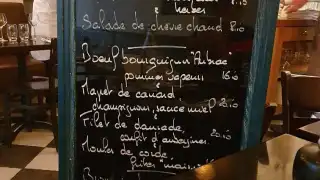 herbes
Salade de chèvre chaud 8.10
Boeuf bourguignon "Aubrac"
pommes vapeurs 16.10
Magret de canard
champignons, sauce miel 20.10
Filet de daurade,
confit d'aubergines 20.10
Moules de corde,
frites "maison"